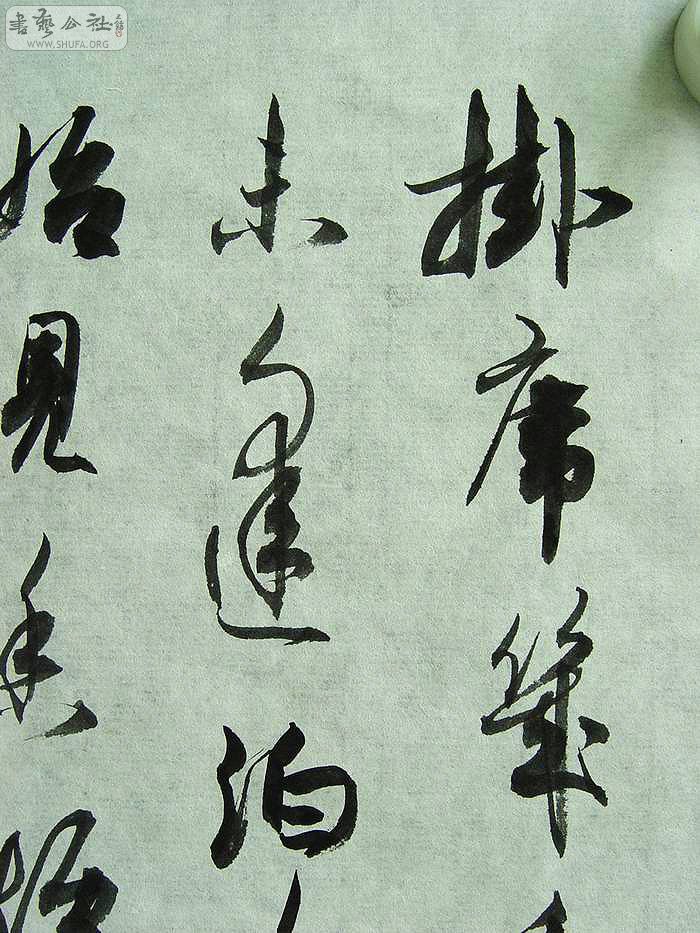 書藝公社
WWW.SHUFA.ORG
掛席幾
未逢泊
始見香